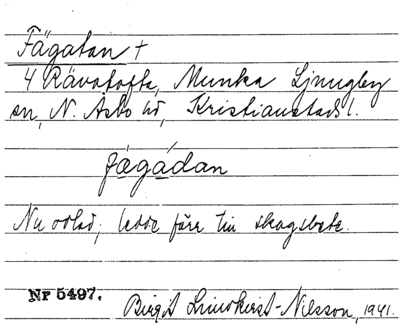 Fägatan +
4 Rävatofta, Munka Ljungby
sn, N. Åsbo hd, Kristianstads l.
fägádan
Nu odlad; ledde förr till skogsbete.
Nr 5497.
Birgit Lindkvist-Nilsson, 1941.